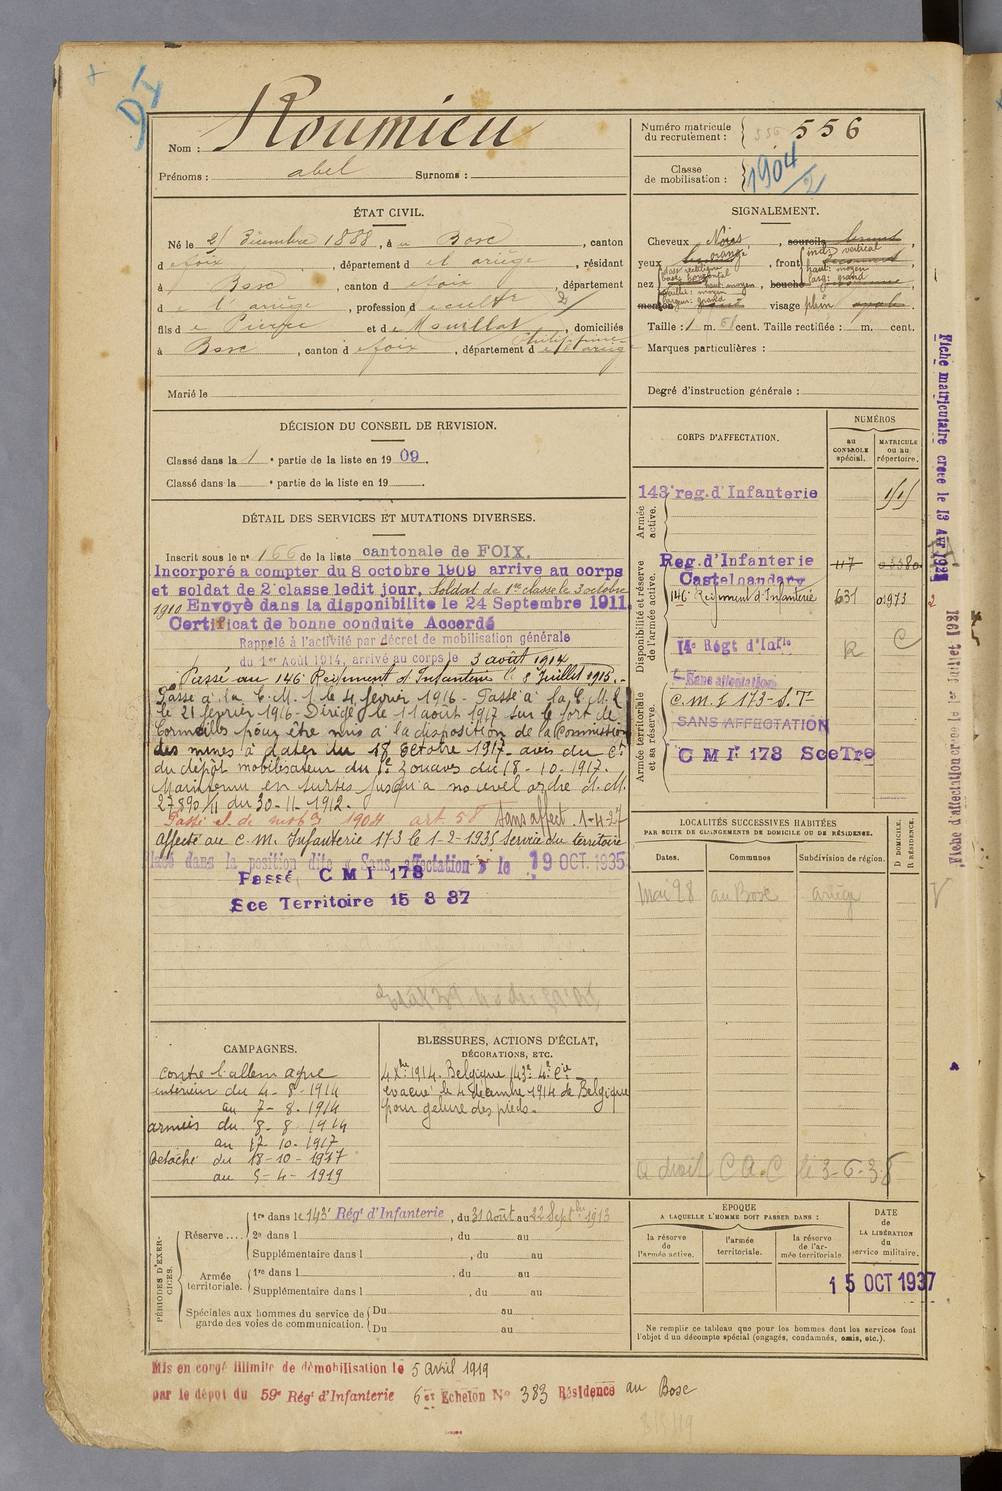 Nom : Roumieu
Prénoms : abel Surnoms :
Numéro matricule du recrutement : 556
Classe de mobilisation : 1904/2
ÉTAT CIVIL.
Né le 21 Décembre 1888, à u Bosc, canton
d e foix, département d e l'ariège, résidant
à Bosc, canton d e foix, département
d e l'ariège, profession d e cultr 2/
fils d e Pierre et d e Mouillat Philippine, domiciliés
à Bosc, canton d e foix, département d e l'ariège
Marié le
SIGNALEMENT.
Cheveux Noirs, sourcils bruns,
yeux orangé, front inclon vertical haut: moyen larg: grand
nez dos: rectiligne base: horizontal haut: moyen saillie: moyen largeur: grand, bouche moyenne,
menton visage plein ovale
Taille : 1 m. 61 cent. Taille rectifiée : m. cent.
Marques particulières :
Degré d'instruction générale :
DÉCISION DU CONSEIL DE REVISION.
Classé dans la 1 e partie de la liste en 1909.
Classé dans la e partie de la liste en 19 .
DÉTAIL DES SERVICES ET MUTATIONS DIVERSES.
Inscrit sous le n° 166 de la liste cantonale de FOIX.
Incorporé a compter du 8 octobre 1909 arrive au corps
et soldat de 2e classe ledit jour, Soldat de 1re classe le 3 octobre
1910 Envoyé dans la disponibilite le 24 Septembre 1911.
Certificat de bonne conduite Accordé
Rappelé à l'activité par décret de mobilisation générale
du 1er Août 1914, arrivé au corps le 3 août 1914
Passé au 146e Regiment d'Infanterie le 8 Juillet 1915.
Passé à la C.M.1 le 4 fevrier 1916 - Passé à la C.M.2
le 21 fevrier 1916 - Dirigé le 11 août 1917 sur le fort de
Cormeilles pour être mis à la disposition de la Commission
des mines à dater du 18 octobre 1917 - avis du Ct
du dépôt mobilisateur du 1e Zouaves du 18-10-1917.
Maintenu en sursis jusqu'à nouvel ordre D.M.
27890 1/11 du 30-11-1912.
Passé cl. de mob 1904 art. 58 Sans affect. 1-4-27
Affecté au C.M. Infanterie 173 le 1-2-1935 Service du territoire
lacé dans la position dite « Sans affectation » le 19 OCT. 1935
Passé C M I 173
Sce Territoire 15 3 37
CORPS D'AFFECTATION.
NUMÉROS
au CONTROLE spécial.
MATRICULE ou au répertoire.
Armée active.
143e reg. d'Infanterie
Disponibilité et réserve de l'armée active.
Reg. d'Infanterie Castelnaudary 117
146e Régiment d'Infanterie 631 01973
14e Régt d'Infie R C
Armée territoriale et sa réserve.
Sans affectation
C.M.I 173 - S.T
SANS AFFECTATION
C M I 173 Sce Tre
LOCALITÉS SUCCESSIVES HABITÉES
PAR SUITE DE CHANGEMENTS DE DOMICILE OU DE RÉSIDENCE.
Dates. Communes Subdivision de région. D DOMICILE. R RÉSIDENCE.
Mai 28 au Bosc ariège
a droit C A. C le 3-6-38
CAMPAGNES.
Contre l'allemagne
intérieur du 4-8-1914
au 7-8-1914
armées du 8-8-1914
au 17-10-1917
Détaché du 18-10-1917
au 5-4-1919
BLESSURES, ACTIONS D'ÉCLAT,
DÉCORATIONS, ETC.
4 Xbre 1914. Belgique 143e 4e Cie
évacué le 4 décembre 1914 de Belgique
pour gelure des pieds.
PÉRIODES D'EXERCICES.
Réserve.... 1re dans le 143e Régt d'Infanterie, du 31 août au 22 Septbre 1913
2e dans l , du au
Supplémentaire dans l , du au
Armée territoriale. 1re dans l , du au
Supplémentaire dans l , du au
Spéciales aux hommes du service de garde des voies de communication. Du au
Du au
ÉPOQUE
A LAQUELLE L'HOMME DOIT PASSER DANS :
la réserve de l'armée active.
l'armée territoriale.
la réserve de l'armée territoriale.
DATE de LA LIBÉRATION du service militaire.
15 OCT 1937
Ne remplir ce tableau que pour les hommes dont les services font
l'objet d'un décompte spécial (engagés, condamnés, omis, etc.).
Mis en congé illimité de démobilisation le 5 avril 1919
par le dépot du 59e Régt d'Infanterie 6e Echelon N° 383 Résidence au Bosc
Fiche matriculaire créée le 13 Avr 1928
Fiche d'affectation créée le